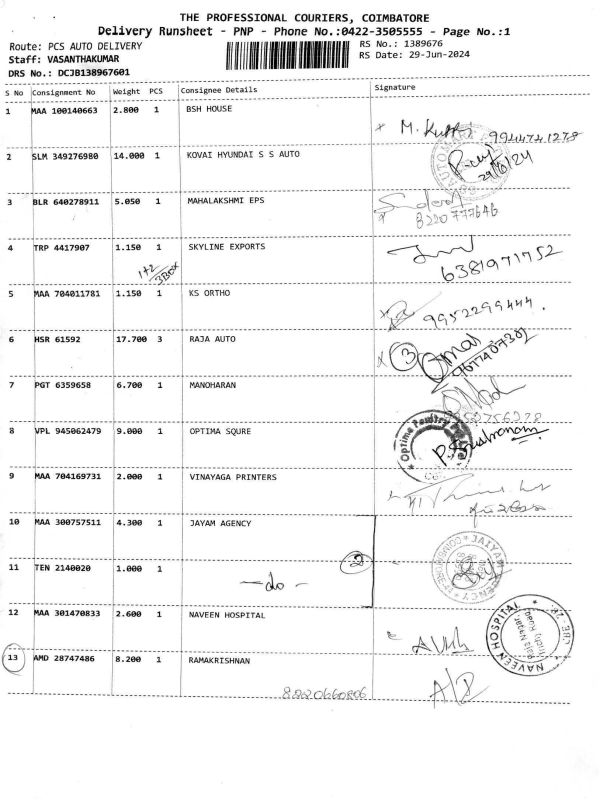 THE PROFESSIONAL COURIERS, COIMBATORE
Delivery Runsheet - PNP - Phone No.:0422-3505555 - Page No.:1
Route: PCS AUTO DELIVERY
RS No.: 1389676
Staff: VASANTHAKUMAR
RS Date: 29-Jun-2024
DRS No.: DCJB138967601
S No Consignment No Weight PCS Consignee Details Signature
1 MAA 100140663 2.800 1 BSH HOUSE
9944741278
2 SLM 349276980 14.000 1 KOVAI HYUNDAI S S AUTO
29/6/24
3 BLR 640278911 5.050 1 MAHALAKSHMI EPS
8220777646
4 TRP 4417907 1.150 1 SKYLINE EXPORTS
1+2
3BOX
6381971752
5 MAA 704011781 1.150 1 KS ORTHO
9952299444.
6 HSR 61592 17.700 3 RAJA AUTO
3
7 PGT 6359658 6.700 1 MANOHARAN
8 VPL 945062479 9.000 1 OPTIMA SQURE
Optima Poultry
9 MAA 704169731 2.000 1 VINAYAGA PRINTERS
10 MAA 300757511 4.300 1 JAYAM AGENCY
11 TEN 2140020 1.000 1
-do-
2
12 MAA 301470833 2.600 1 NAVEEN HOSPITAL
NAVEEN HOSPITAL
Raja Nagar
Trichy Road
CBE-
13 AMD 28747486 8.200 1 RAMAKRISHNAN
8220660806